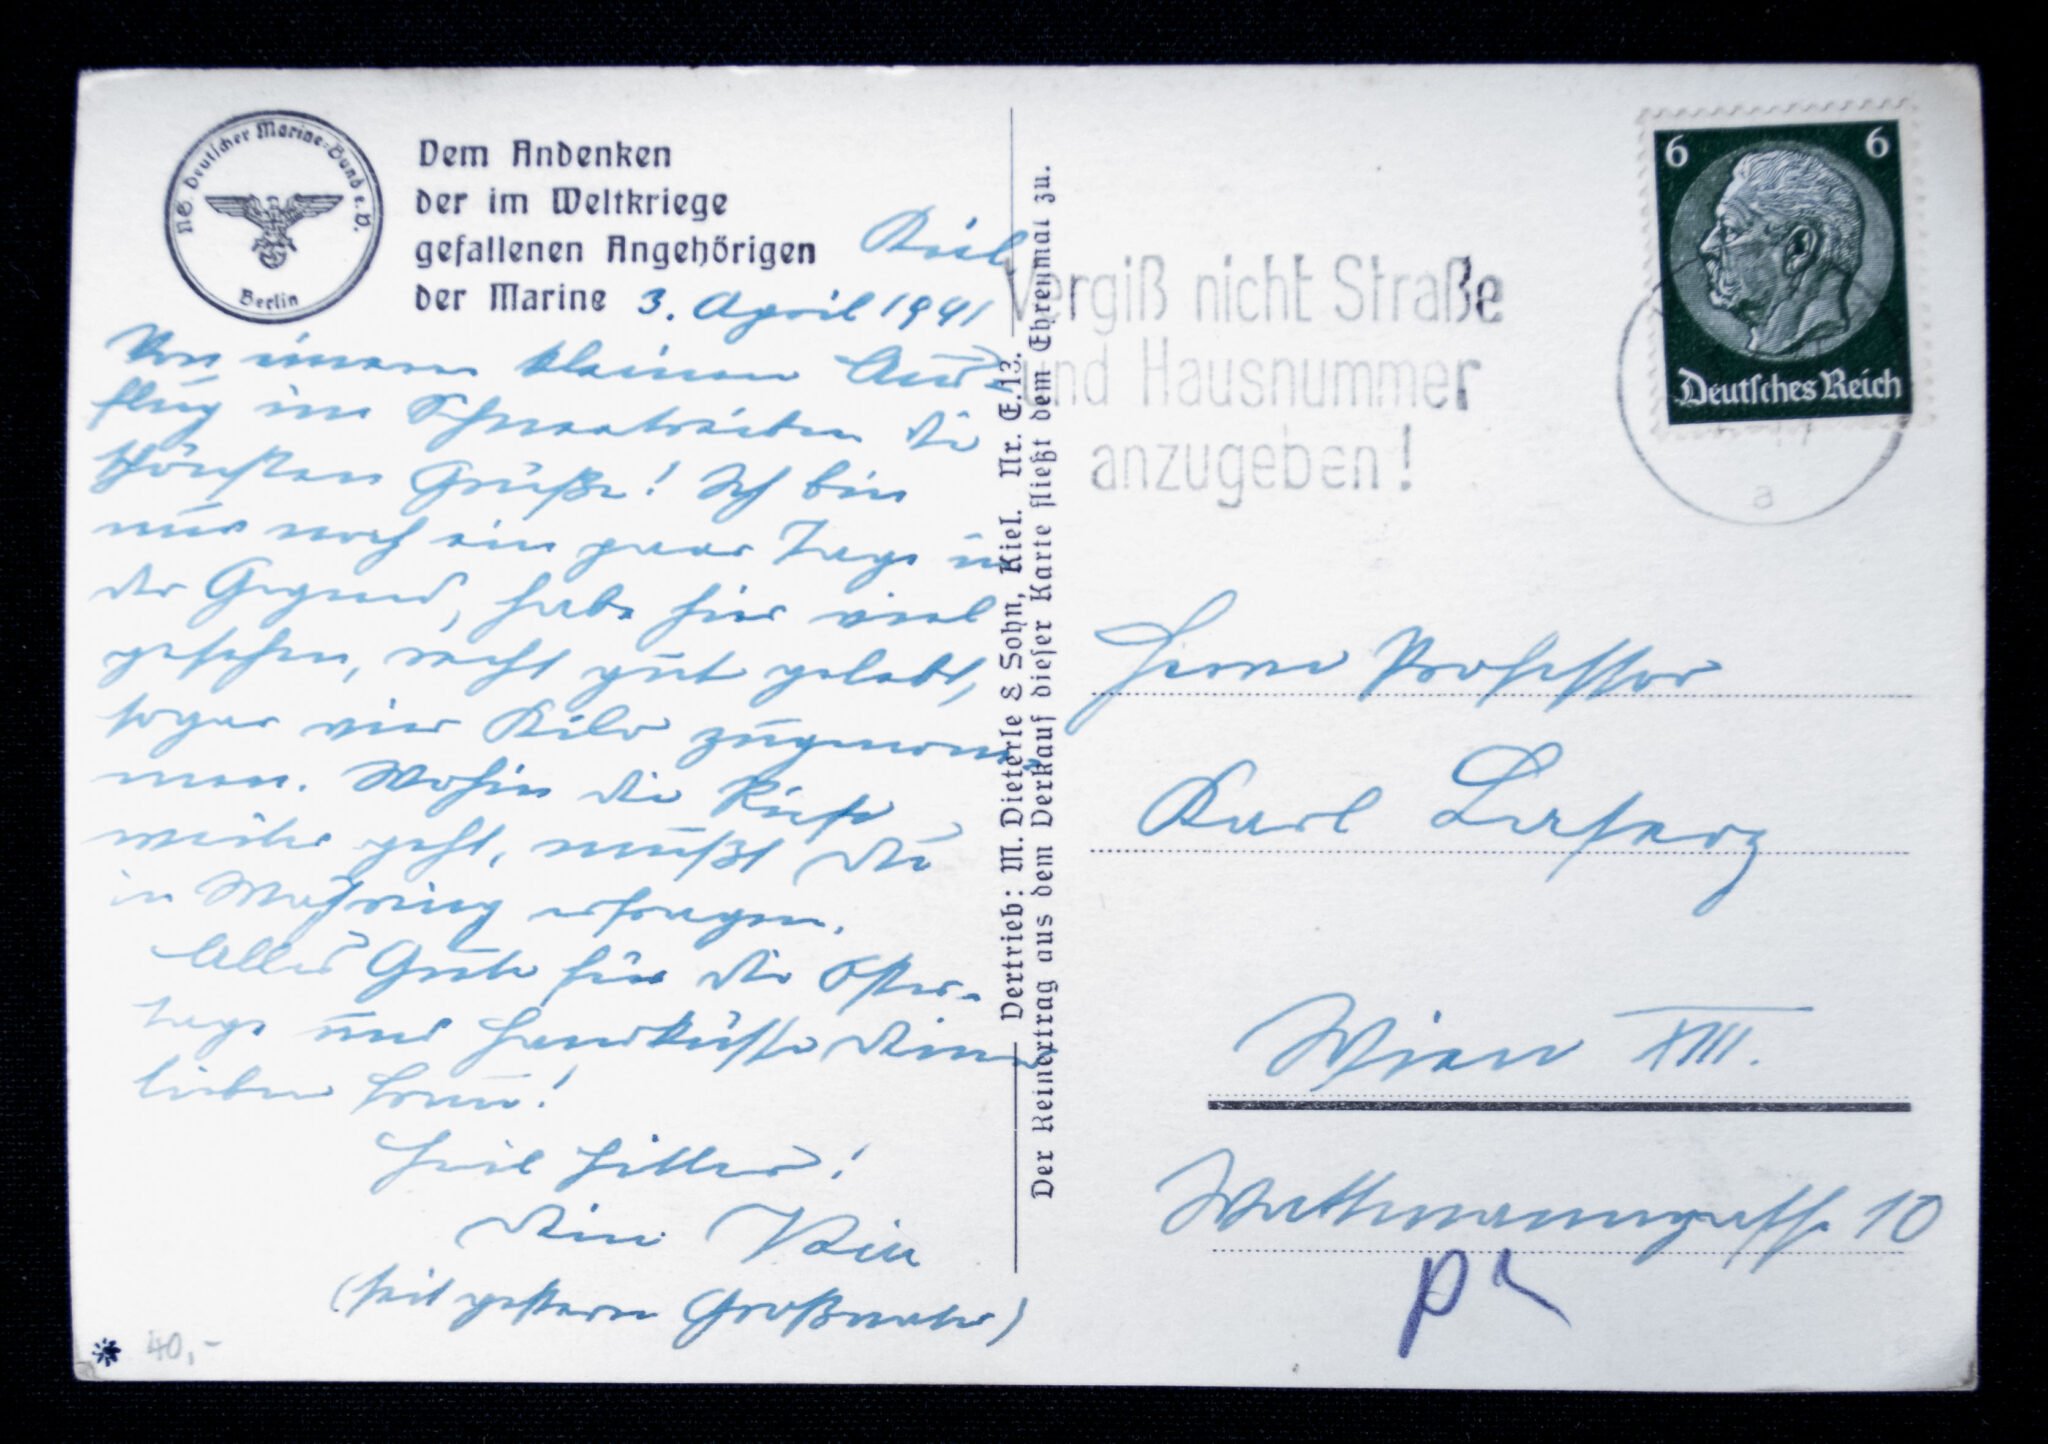 NS. Deutscher Marine-Bund e.V.
Berlin
Dem Andenken
der im Weltkriege
gefallenen Angehörigen
der Marine
Kiel,
3. April 1941
Von einem kleinen Aus-
flug ins Schneetreiben die
schönsten Grüße! Ich bin
nur noch ein paar Tage in
der Gegend, habe hier viel
gesehen, recht gut gelebt,
sogar vier Kilo zugenom-
men. Wohin die Reise
weiter geht, mußt Du
in Währing erfragen.
Alles Gute für die Oster-
tage und Handküsse Deiner
lieben Frau!
Heil Hitler!
Dein
(seit gestern Großvater)
40,-
Vertrieb: M. Dieterle & Sohn, Kiel. Nr. E. 13.
Der Reinertrag aus dem Verkauf dieser Karte fließt dem Ehrenmal zu.
Vergiß nicht Straße
und Hausnummer
anzugeben!
a
6 6
Deutsches Reich
Herrn Professor
Karl
Wien XIII.
Wattmanngasse 10